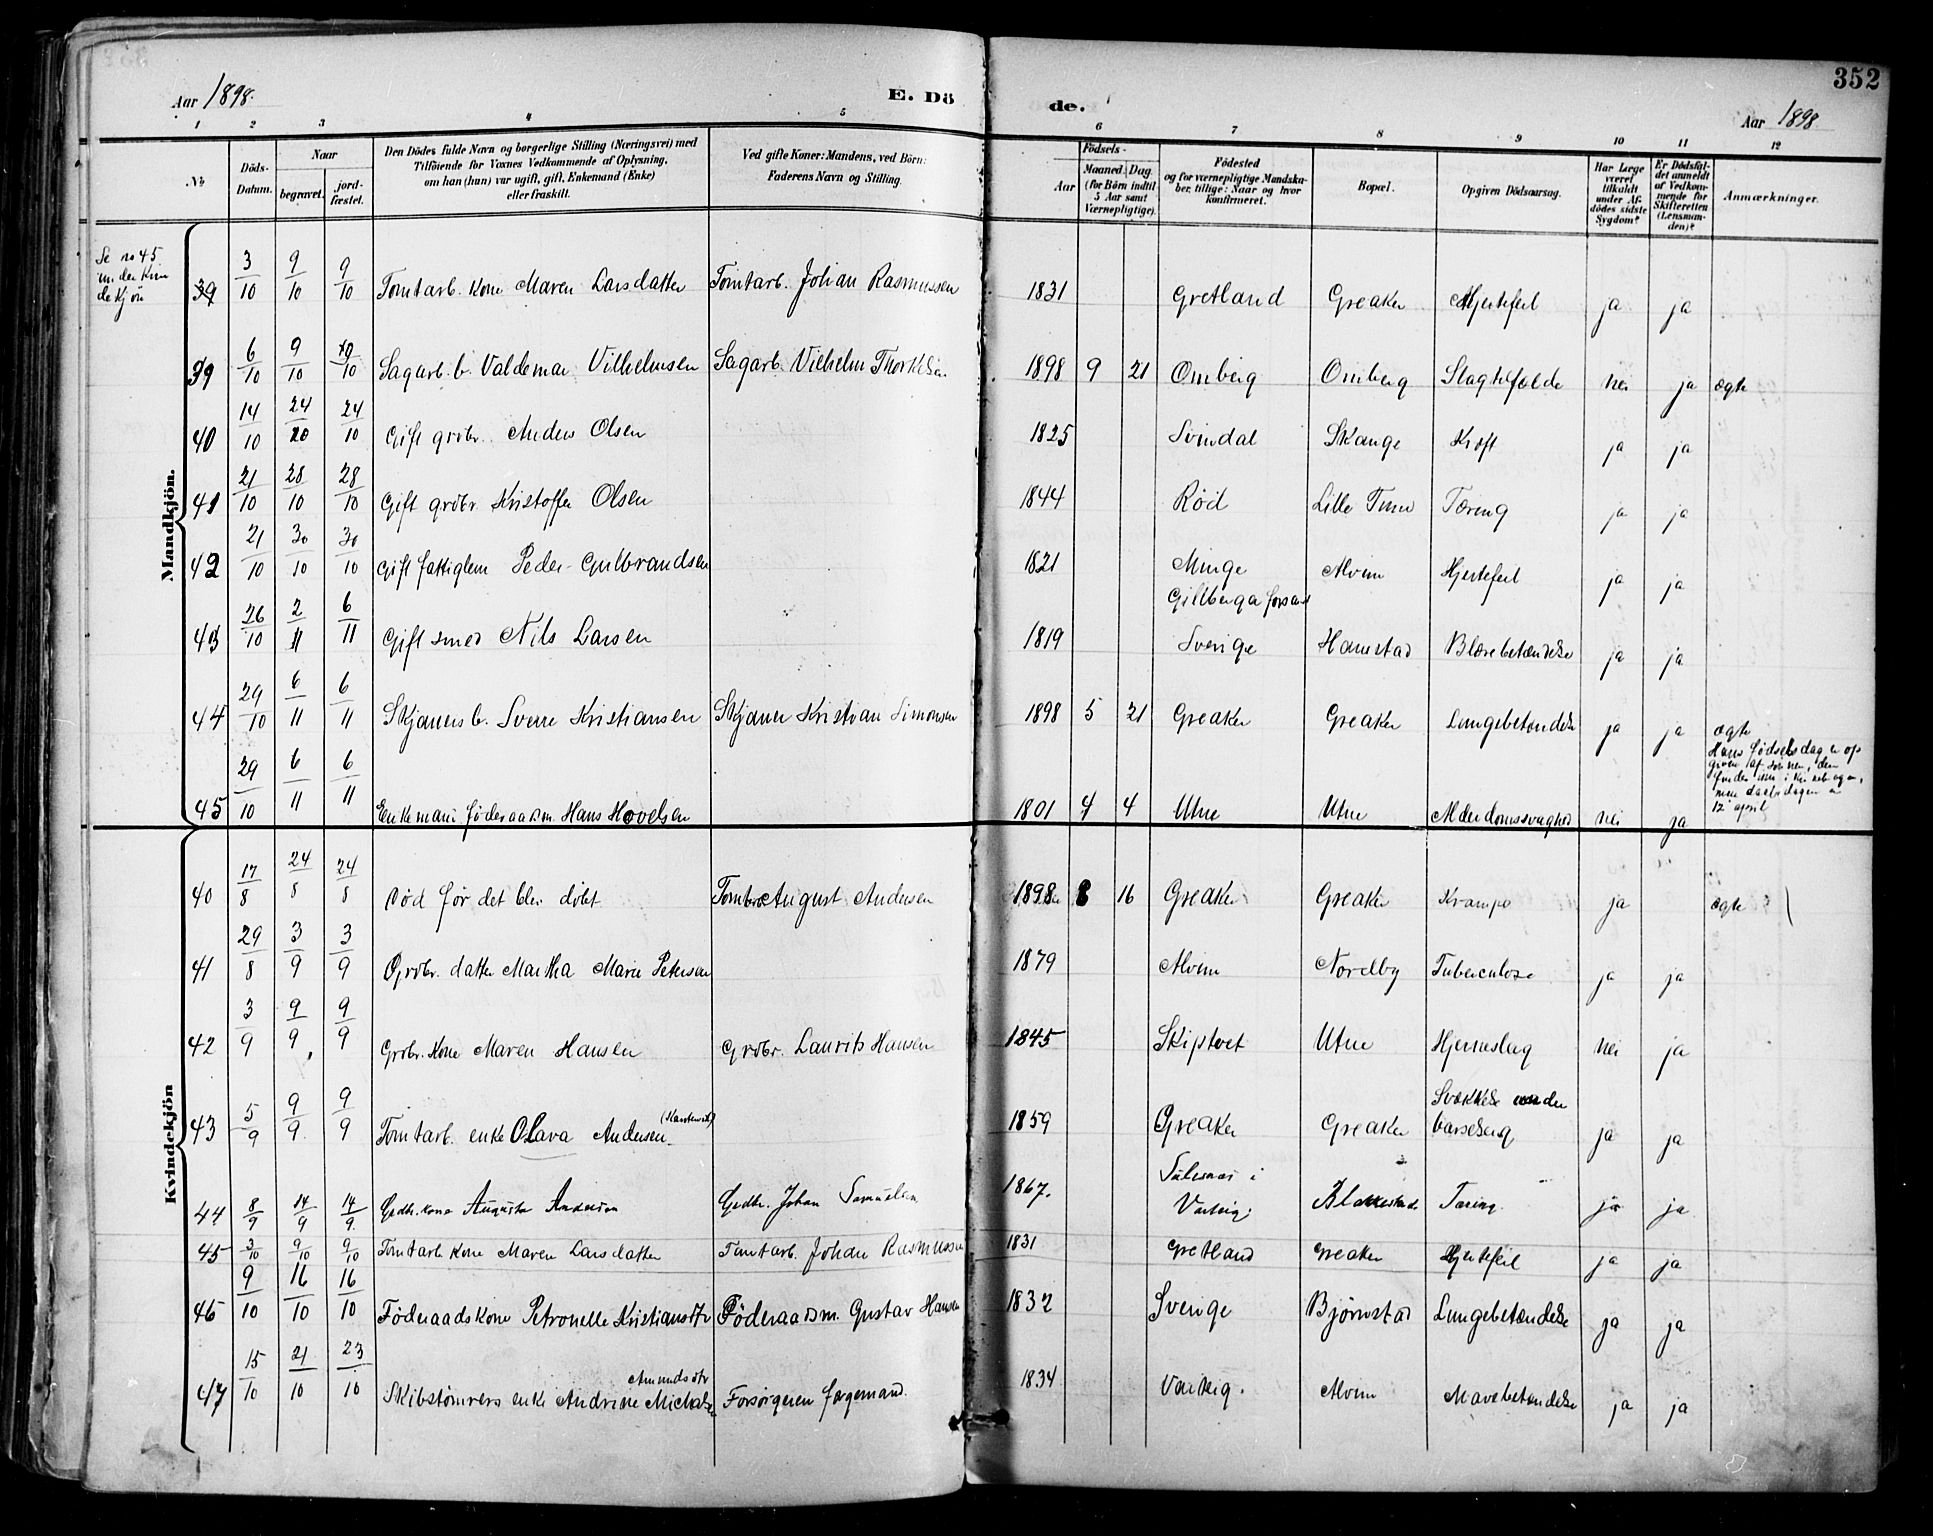 352
Aar 1898.
E. Dö
de.
Aar 1898
1 2 3 4 5 6 7 8 9 10 11 12
No
Döds-Datum.
Naar
begravet.
jord-fæstet.
Den Dödes fulde Navn og borgerlige Stilling (Næringsvei) med
Tilföiende for Voxnes Vedkommende af Oplysning,
om han (hun) var ugift, gift, Enkemand (Enke)
eller fraskilt.
Ved gifte Koner: Mandens, ved Börn:
Faderens Navn og Stilling.
Födsels-
Aar
Maaned. Dag.
(for Börn indtil
5 Aar samt
Værnepligtige).
Födested
og for værnepligtige Mandska-
ber tillige: Naar og hvor
konfirmeret.
Bopæl.
Opgiven Dödsaarsag.
Har Læge
været
tilkaldt
under Af-
dödes sidste
Sygdom?
Er Dödsfal-
det anmeldt
af Vedkom-
mende for
Skifteretten
(Lensman-
den)?
Anmærkninger.
Mandkjön.
Se no 45
under Kvin
dekjön
39 3/10 9/10 9/10 Tomtarb. Kone Maren Larsdatter Tomtarb. Johan Rasmussen 1831 Gretland Greaker Hjertefeil ja ja
39 6/10 9/10 10/10 Sagarb. b. Valdemar Vilhelmsen Sagarb. Vilhelm Thorkilsen 1898 9 21 Omberg Omberg Slagtefælde nei ja ægte
40 14/10 24/10 24/10 Gift grdbr. Anders Olsen 1825 Svindal Skauge Kræft ja ja
41 21/10 28/10 28/10 Gift grdbr. Kristoffer Olsen 1844 Rød Lille Tune Tæring ja ja
42 21/10 30/10 30/10 Gift fattiglem Peder Gulbrandsen 1821 Minge Alvim Hjertefeil ja ja
43 26/10 2/11 6/11 Gift smed Nils Larsen 1819 Gillberga forsaml Sverige Hanestad Blærebetændelse ja ja
44 29/10 6/11 6/11 Skjauers b. Sverre Kristiansen Skjauer Kristian Simonsen 1898 5 21 Greaker Greaker Lungebetændelse ja ja ægte
45 29/10 6/11 6/11 Enkemand føderaadsm. Hans Hovelsen 1801 4 4 Utne Utne Alderdomssvaghed nei ja
Hans fødselsdag er op
given af sønnen, den
findes ikke i kirkebogen,
men daabsdagen er
12 april
Kvindekjön
40 17/8 24/8 24/8 Død før det blev døbt Tomtarb. August Andersen 1898 8 16 Greaker Greaker Krampe ja ægte
41 29/8 3/9 3/9 Grdbr. datter Martha Marie Petersen 1879 Alvim Nordby Tuberculose ja ja
42 3/9 9/9 9/9 Grdbr. Kone Maren Hansen Grdbr. Laurits Hansen 1845 Skiptvet Utne Hjerneslag nei ja
43 5/9 9/9 9/9 Tomtarb. enke Olava Andersen 1859 Greaker Greaker Svækkelse under barselseng ja ja
44 8/9 14/9 14/9 Grdbr. kone Augusta Anderson Grdbr. Johan Samuelsen 1867. i Varteig. Tæring. ja ja
45 3/10 9/10 9/10 Tomtarb Kone Maren Larsdatter Tomtarb. Johan Rasmussen 1831 Gretland Greaker Hjertefeil ja ja
46 9/10 16/10 16/10 Føderaadskone Petronelle Kristiansdtr Føderaadsm. Gustav Hansen 1832 Sverige Bjørnstad Lungebetændelse ja ja
47 15/10 21/10 23/10 Skibstømrers enke Andrine Michalsen Amundsdtr Forsørgeren færgemand. 1834 Varteig. Alvim Mavebetændelse ja ja